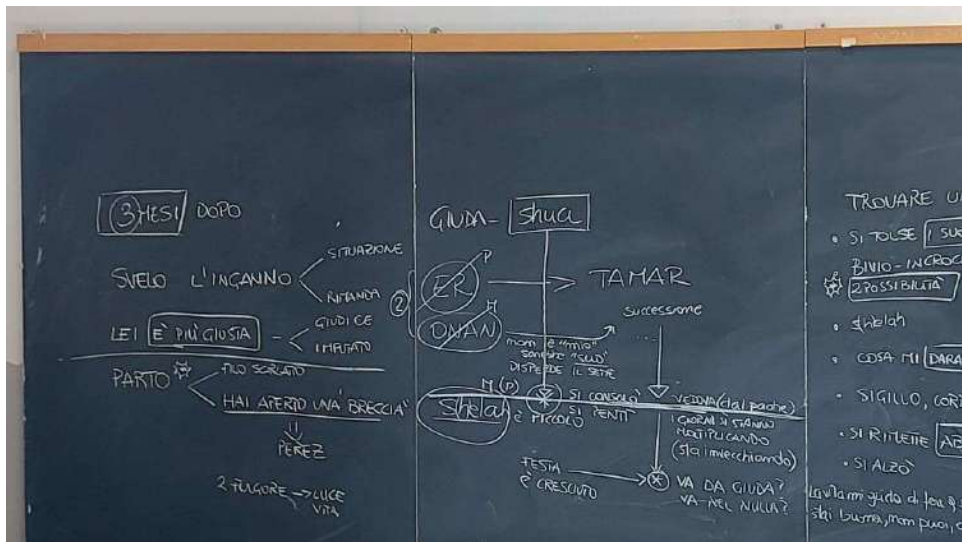 3 MESI DOPO
SVELO L'INGANNO
SITUAZIONE
LEI È PIÙ GIUSTA
GIUDICE
IMPUTATO
PARTO
FILO SCARLATO
HAI APERTO UNA BRECCIA
PEREZ
2 FULGORE → LUCE
VITA
GIUDA - Shua
P
2
ER → TAMAR
M
ONAN
non è "mio"
sarebbe "suo"
DISPERDE IL SEME
successione
M (P)
Shelah
È PICCOLO
SI CONSOLÒ
SI PENTÌ
VEDOVA (dal padre)
I GIORNI SI STANNO
MOLTIPLICANDO
(sta invecchiando)
FESTA
È CRESCIUTO
VA DA GIUDA?
VA NEL NULLA?
TROVARE U
• SI TOLSE I SUO
BIVIO - INCROC
2 POSSIBILITÀ
• Shelah
• COSA MI DARA
• SIGILLO, CORD
• SI RIMETTE AB
• SI ALZÒ